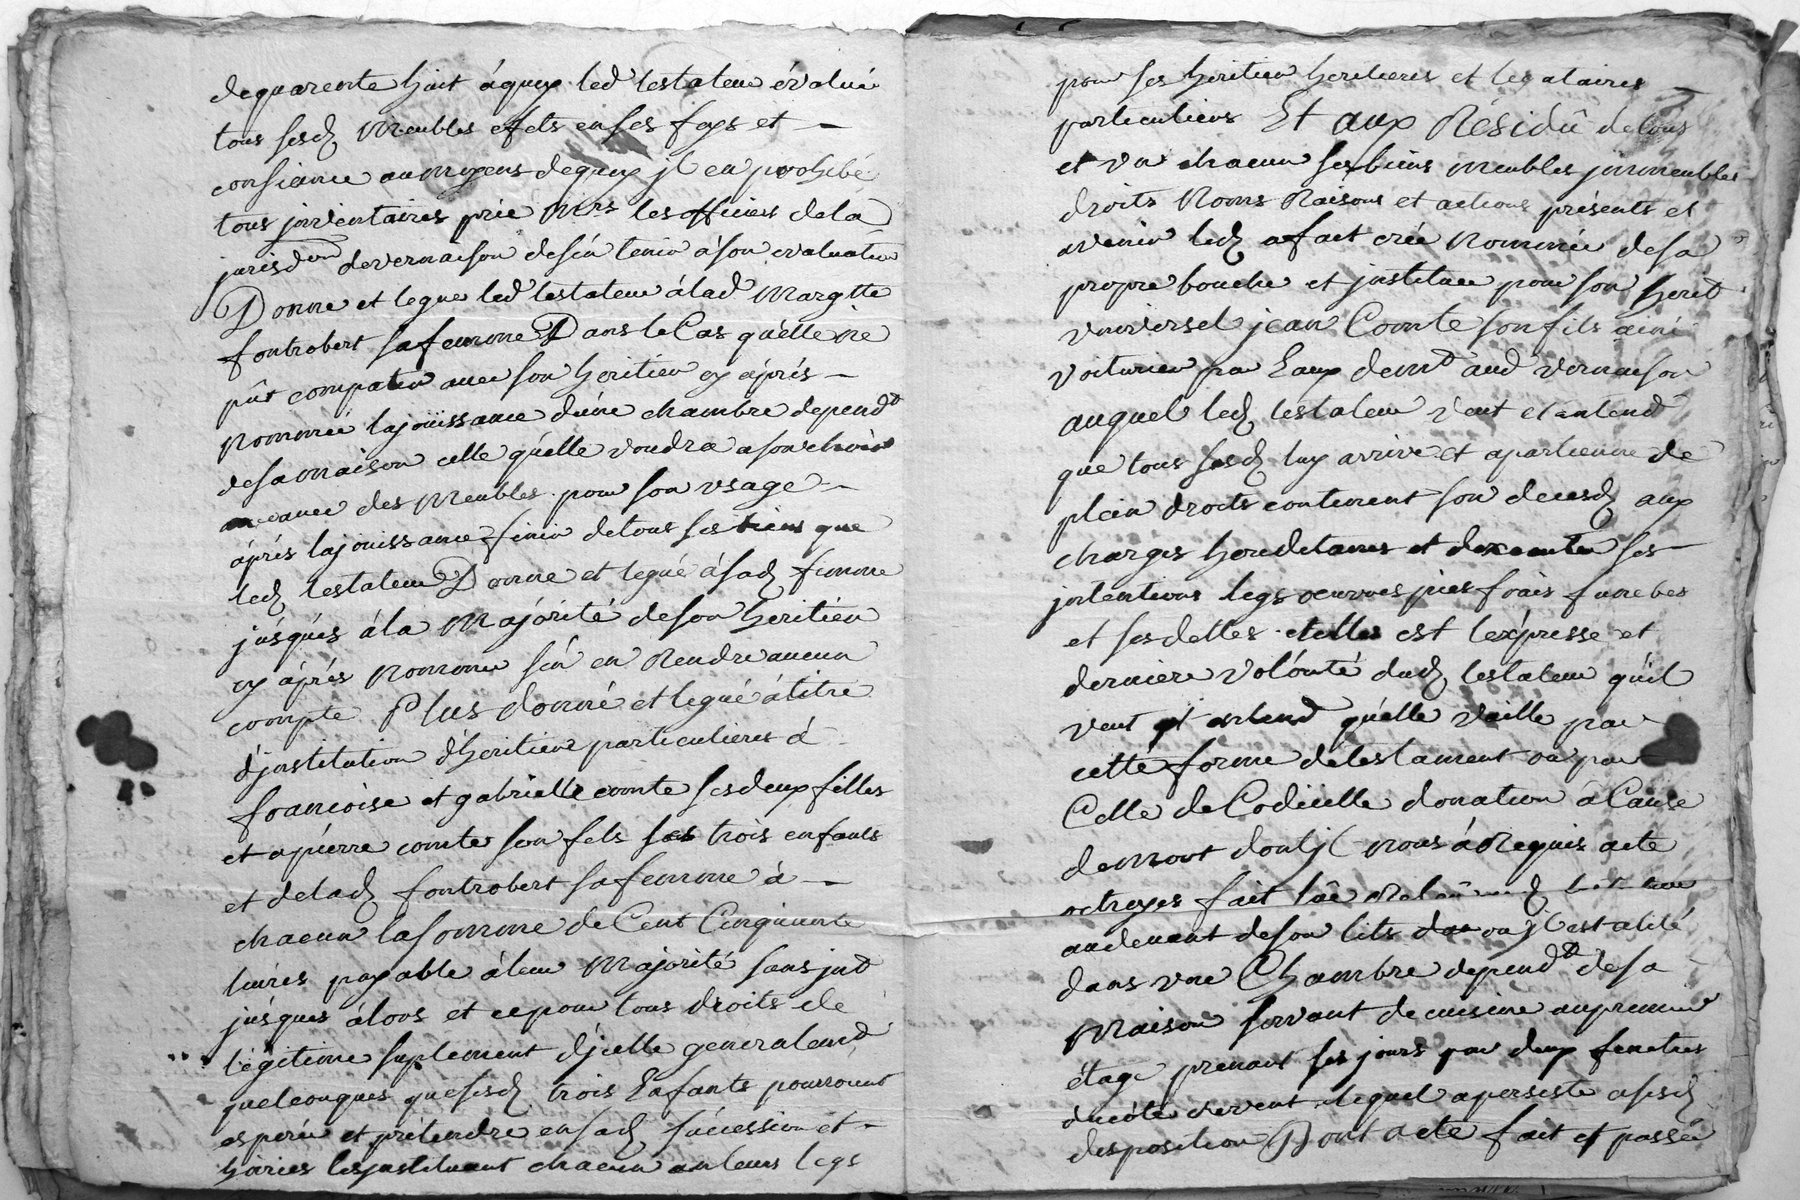 dequarente huit áquoy led testateur évalué
tous sesd meubles efets en ses foys et
consience aumoyens dequoy jl en prohibé
tous jnventaires prie Mrs les officiers dela
jurisdon devernaison desén tenir áson evaluation
Donne et legue led testateur álad Margtte
fontrobert safemme Dans leCas quélle ne
pût compatir avec son heritier cy áprés
Nommé lajoüissance dúne chambre dependt
desamaison celle quélle voudra a son choix
avec des Meubles pour son usage
áprés lajouissance finir detous ses biens que
led testateur Donne et legué ásad femme
júsqués ála Majórité deson heritiér
cy áprés Nommé sén en Rendre aucun
compte Plus donné et legué átitre
d'jnstitution d'héritiere particulieres á
francoise et gabrielle comte ses deux filles
et apiérre comte son fils ses trois enfants
et delad fontrobert safemme á
chacun lasomme de Cent Cinquante
livres payable áleur Majorité sans jnt
júsques álors et cepour tous droits de
légitime suplement d'jcelle generalemt
quelconques quésesd trois Enfants pourroient
esperér et prétendre en sad súccession et
hoiries lesjnstituant chacun en leurs legs
pour ses heritiers heritieres et legataires
particuliers Et aux Résidû detous
et un chacun ses biens meubles jmmeubles
droits Noms Raisons et actions présents et
avenir led a fait créé Nommée desa
propre bouche et jnstitue pour son herit
universel jean Comte son fils ainé
voiturier par Eaux demt aud vernaison
auquel led testateur veut et entend
que tous sesd luy arrive et apartienne de
plein droits contiment son decesd aux
charges hereditaires et dexecuter ses
jntentions legs oeuvres pies frais funebes
et ses dettes et telles est lexpresse et
derniere volónté dud testateur qúil
veut et entend quélle vaille par
cétte forme détestament ou par
Celle deCodicille donation áCause
demort dont jl nous áRequis acte
octroyés fait lû
audevant deson lits ou jl est alité
dans une Chambre dependt desa
Maison servant decuisine aupremier
étage prenant ses jours par deux fenetres
ducóté devent lequel apersiste asesd
disposition Dont acte fait et passée